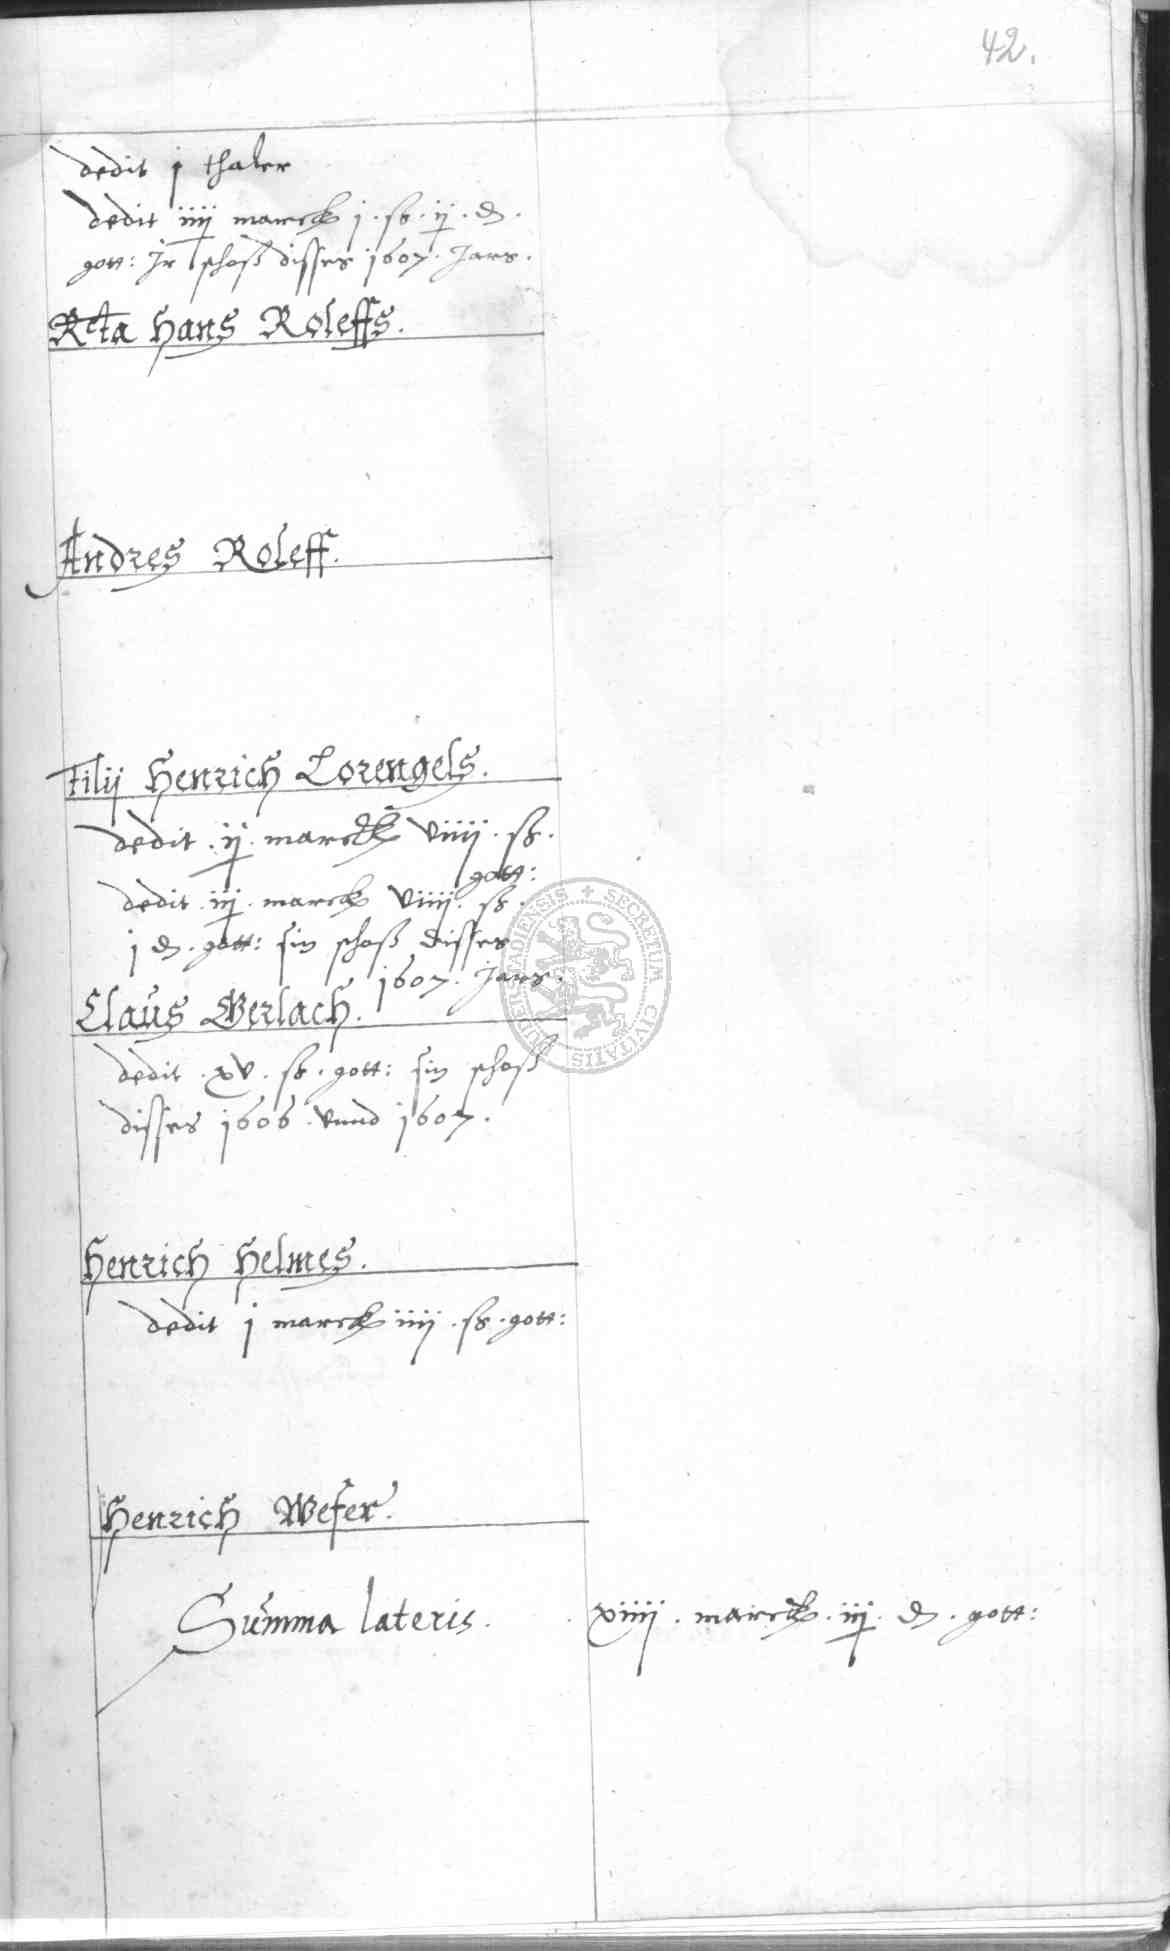 42.
dedit j thaler
dedit iiij marck j. ß. ij. d.
gott: Jr schoß disses 1607. Jars.
Rcta Hans Roleffs.
Andres Roleff.
Filij Henrich Lorengels.
dedit. ij. marck viiij. ß.
gott:
dedit. iij. marck viiij. ß.
j d. gott: sin schoß disses
1607. Jars.
Claus Gerlach.
dedit. xv. ß. gott: sin schoß
disses 1606. vnnd 1607.
Henrich Helmes.
dedit j marck iiij. ß. gott:
Henrich Wefer.
Summa lateris. xiiij. marck. iij. d. gott:
SECRETUM CIVITATIS DUDERSTADIENSIS